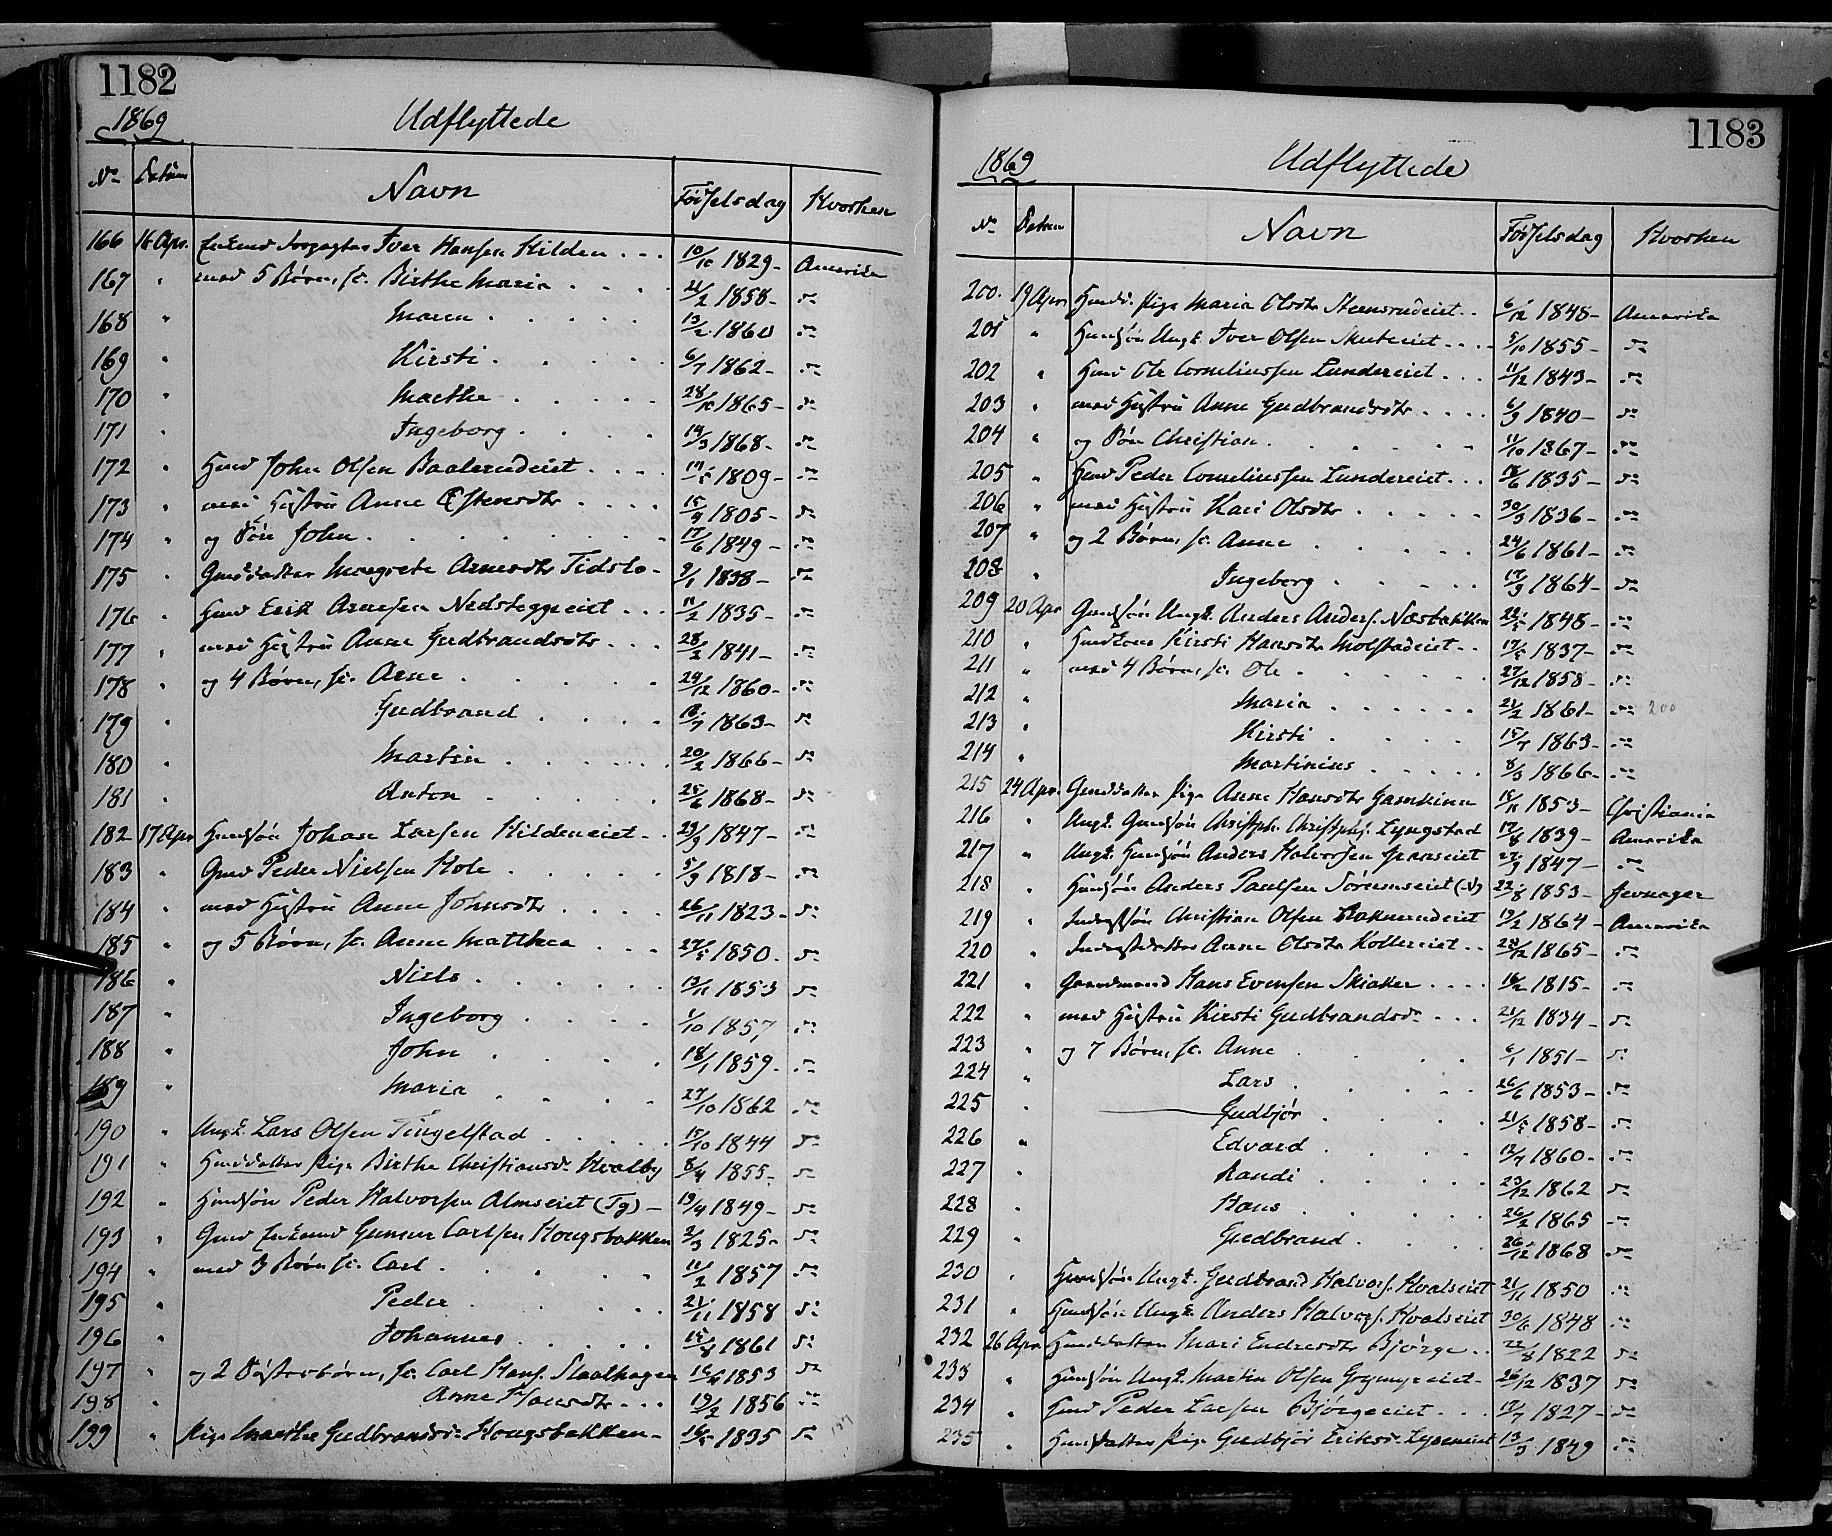 1182
1869
Udflyttede
No Datum Navn Føiselsdag Hvorhen
166 16 Apr. Enkemd Iver Hansen Hilden 10/10 1829 Amerika
167 " med 5 Børn, sc. Birthe Maria 21/2 1858 do
168 " Maren 13/2 1860 do
169 " Kirsti 6/7 1862 do
170 " Marthe 28/10 1865 do
171 " Ingeborg 14/3 1868 do
172 " Hmd John Olsen Baalerudeiet 1809 do
173 " med Hustru Anne Østensdtr 15/9 1805 do
174 " og Søn John 17/6 1849 do
175 " Gmddatter Margrete Arnesdtr Tidslo 9/1 1838 do
176 " Hmd Erik Arnesen Nedsteggeeiet 11/2 1835 do
177 " med Hustru Anne Gudbrandsdtr 28/2 1841 do
178 " og 4 Børn, sc. Arne 29/12 1860 do
179 " Gudbrand 18/7 1863 do
180 " Martin 20/2 1866 do
181 " Anton 25/6 1868 do
182 17 Apr Hmdsøn Johan Larsen Hildeneiet 23/9 1847 do
183 " Gmd Peder Nielsen Hole 5/9 1818 do
184 " med Hustru Anne Johnsdtr 26/11 1823 do
185 " og 5 Børn, sc. Anne Matthea 27/5 1850 do
186 " Niels 13/11 1853 do
187 " Ingeborg 1/10 1857 do
188 " John 18/1 1859 do
189 " Maria 27/10 1862 do
190 " Ungk. Lars Olsen Tingelstad 15/10 1844 do
191 " Hmddatter Pige Birthe Christiansd. Hvalby 8/4 1855 do
192 " Hmdsøn Peder Halvorsen Almseiet (Tg) 19/4 1849 do
193 " Gmd Enkemd Gunner Carlsen Hougsbakken 2/3 1825 do
194 " med 3 Børn sc. Carl 11/2 1857 do
195 " Peder 21/11 1858 do
196 " Johannes 15/8 1861 do
197 " og 2 Søsterbørn, sc. Carl Hans. Staalhagen 1853 do
198 " Anne Hansdtr 19/2 1856 do
199 " Pige Marthe Gudbrandsd. Hougsbakken 1835 do
1183
1869
Udflyttede
No Datum Navn Føiselsdag Hvorhen
200. 19 Apr. Hmds. Pige Maria Olsdtr Steensrudeiet 6/12 1848 Amerika
201 " Hmdsøn Ungk. Iver Olsen 5/10 1855 do
202 " Hmd Ole Corneliussen Lundereiet 11/12 1843 do
203 " med Hustru Anne Gudbrandsdtr 6/9 1840 do
204 " og Søn Christian 11/10 1867 do
205 " Hmd Peder Corneliussen Lundereiet 1835 do
206 " med Hustru Kari Olsdtr 30/3 1836 do
207 " og 2 Børn, sc. Anne 24/6 1861 do
208 " Ingeborg 17/9 1864 do
209 20 Apr Gmdsøn Ungk. Anders Anders. Næsbakken 22/5 1848 do
210 " Hmdkone Kirsti Hansdtr Molstadeiet 19/5 1837 do
211 " med 4 Børn, sc. Ole 27/12 1858 do
212 " Maria 21/2 1861 do 200
213 " Kirsti 15/7 1863 do
214 " Martinius 8/3 1866 do
215 24 Apr. Gmddatter Pige Anne Hansdtr Gamkinn 15/11 1853 Christiania
216 " Ungk. Gmdsøn Christph. Christphs. Lyngstad 17/8 1839 Amerika
217 " Ungk. Hmdsøn Anders Halvorsen Granseiet 27/9 1847 do
218 " Hmdsøn Anders Paulsen Sørumseiet (N) 22/8 1853 Jevnager
219 " Inderstsøn Christian Olsen Raknerudeiet 19/2 1864 Amerika
220 " Inderstdatter Anne Olsdtr Kollereiet 28/12 1865 do
221 " Gaardmand Hans Evensen Skiaker 16/2 1815 do
222 " med Hustru Kirsti Gudbrandsd. 21/12 1834 do
223 " og 7 Børn, sc. Anne 6/1 1851 do
224 " Lars 26/6 1853 do
225 " Gudbjør 21/5 1858 do
226 " Edvard 12/7 1860 do
227 " Randi 23/12 1862 do
228 " Hans 26/2 1865 do
229 " Gudbrand 26/12 1868 do
230 " Hmdsøn Ungk. Gudbrand Halvors. Hvalseiet 21/11 1850 do
231 " Hmdsøn Ungk. Anders Halvors. Hvalseiet 30/6 1848 do
232 26 Apr. Hmddatter Mari Endresdtr Bjørge 22/8 1822 do
233 " Hmdsøn Ungk. Martin Olsen 26/12 1837 do
234 " Hmd Peder Larsen Bjørgeeiet 17/7 1827 do
235 " Hmddatter Pige Gudbjør Eriksd. 13/3 1849 do